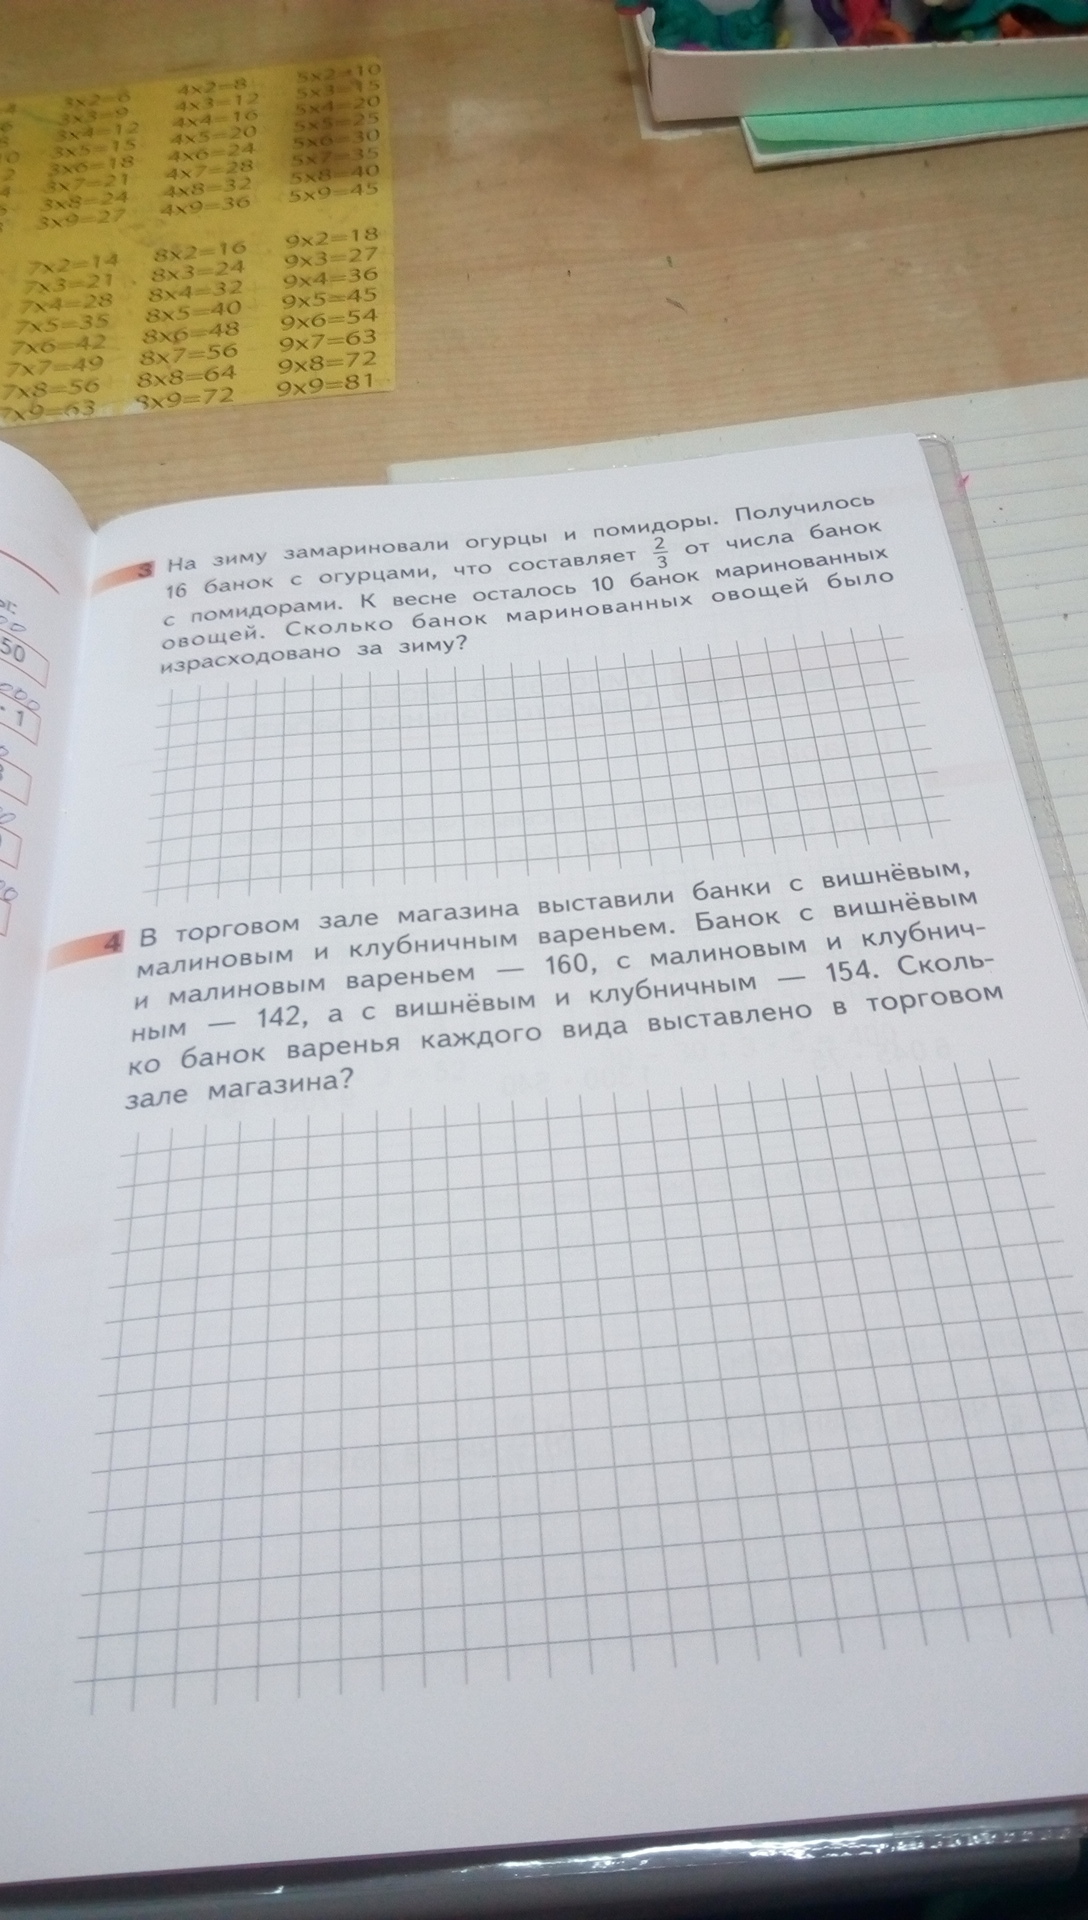 3x2=6
3x3=9
3x4=12
3x5=15
3x6=18
3x7=21
3x8=24
3x9=27
4x2=8
4x3=12
4x4=16
4x5=20
4x6=24
4x7=28
4x8=32
4x9=36
5x2=10
5x3=15
5x4=20
5x5=25
5x6=30
5x7=35
5x8=40
5x9=45
7x2=14
7x3=21
7x4=28
7x5=35
7x6=42
7x7=49
7x8=56
7x9=63
8x2=16
8x3=24
8x4=32
8x5=40
8x6=48
8x7=56
8x8=64
8x9=72
9x2=18
9x3=27
9x4=36
9x5=45
9x6=54
9x7=63
9x8=72
9x9=81
3 На зиму замариновали огурцы и помидоры. Получилось
16 банок с огурцами, что составляет 2/3 от числа банок
с помидорами. К весне осталось 10 банок маринованных
овощей. Сколько банок маринованных овощей было
израсходовано за зиму?
4 В торговом зале магазина выставили банки с вишнёвым,
малиновым и клубничным вареньем. Банок с вишнёвым
и малиновым вареньем — 160, с малиновым и клубнич-
ным — 142, а с вишнёвым и клубничным — 154. Сколь-
ко банок варенья каждого вида выставлено в торговом
зале магазина?